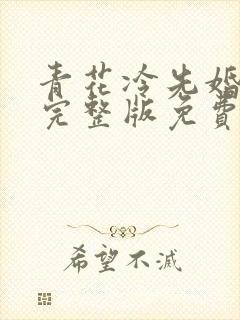 青花冷先婚
完整版免費
希望不滅